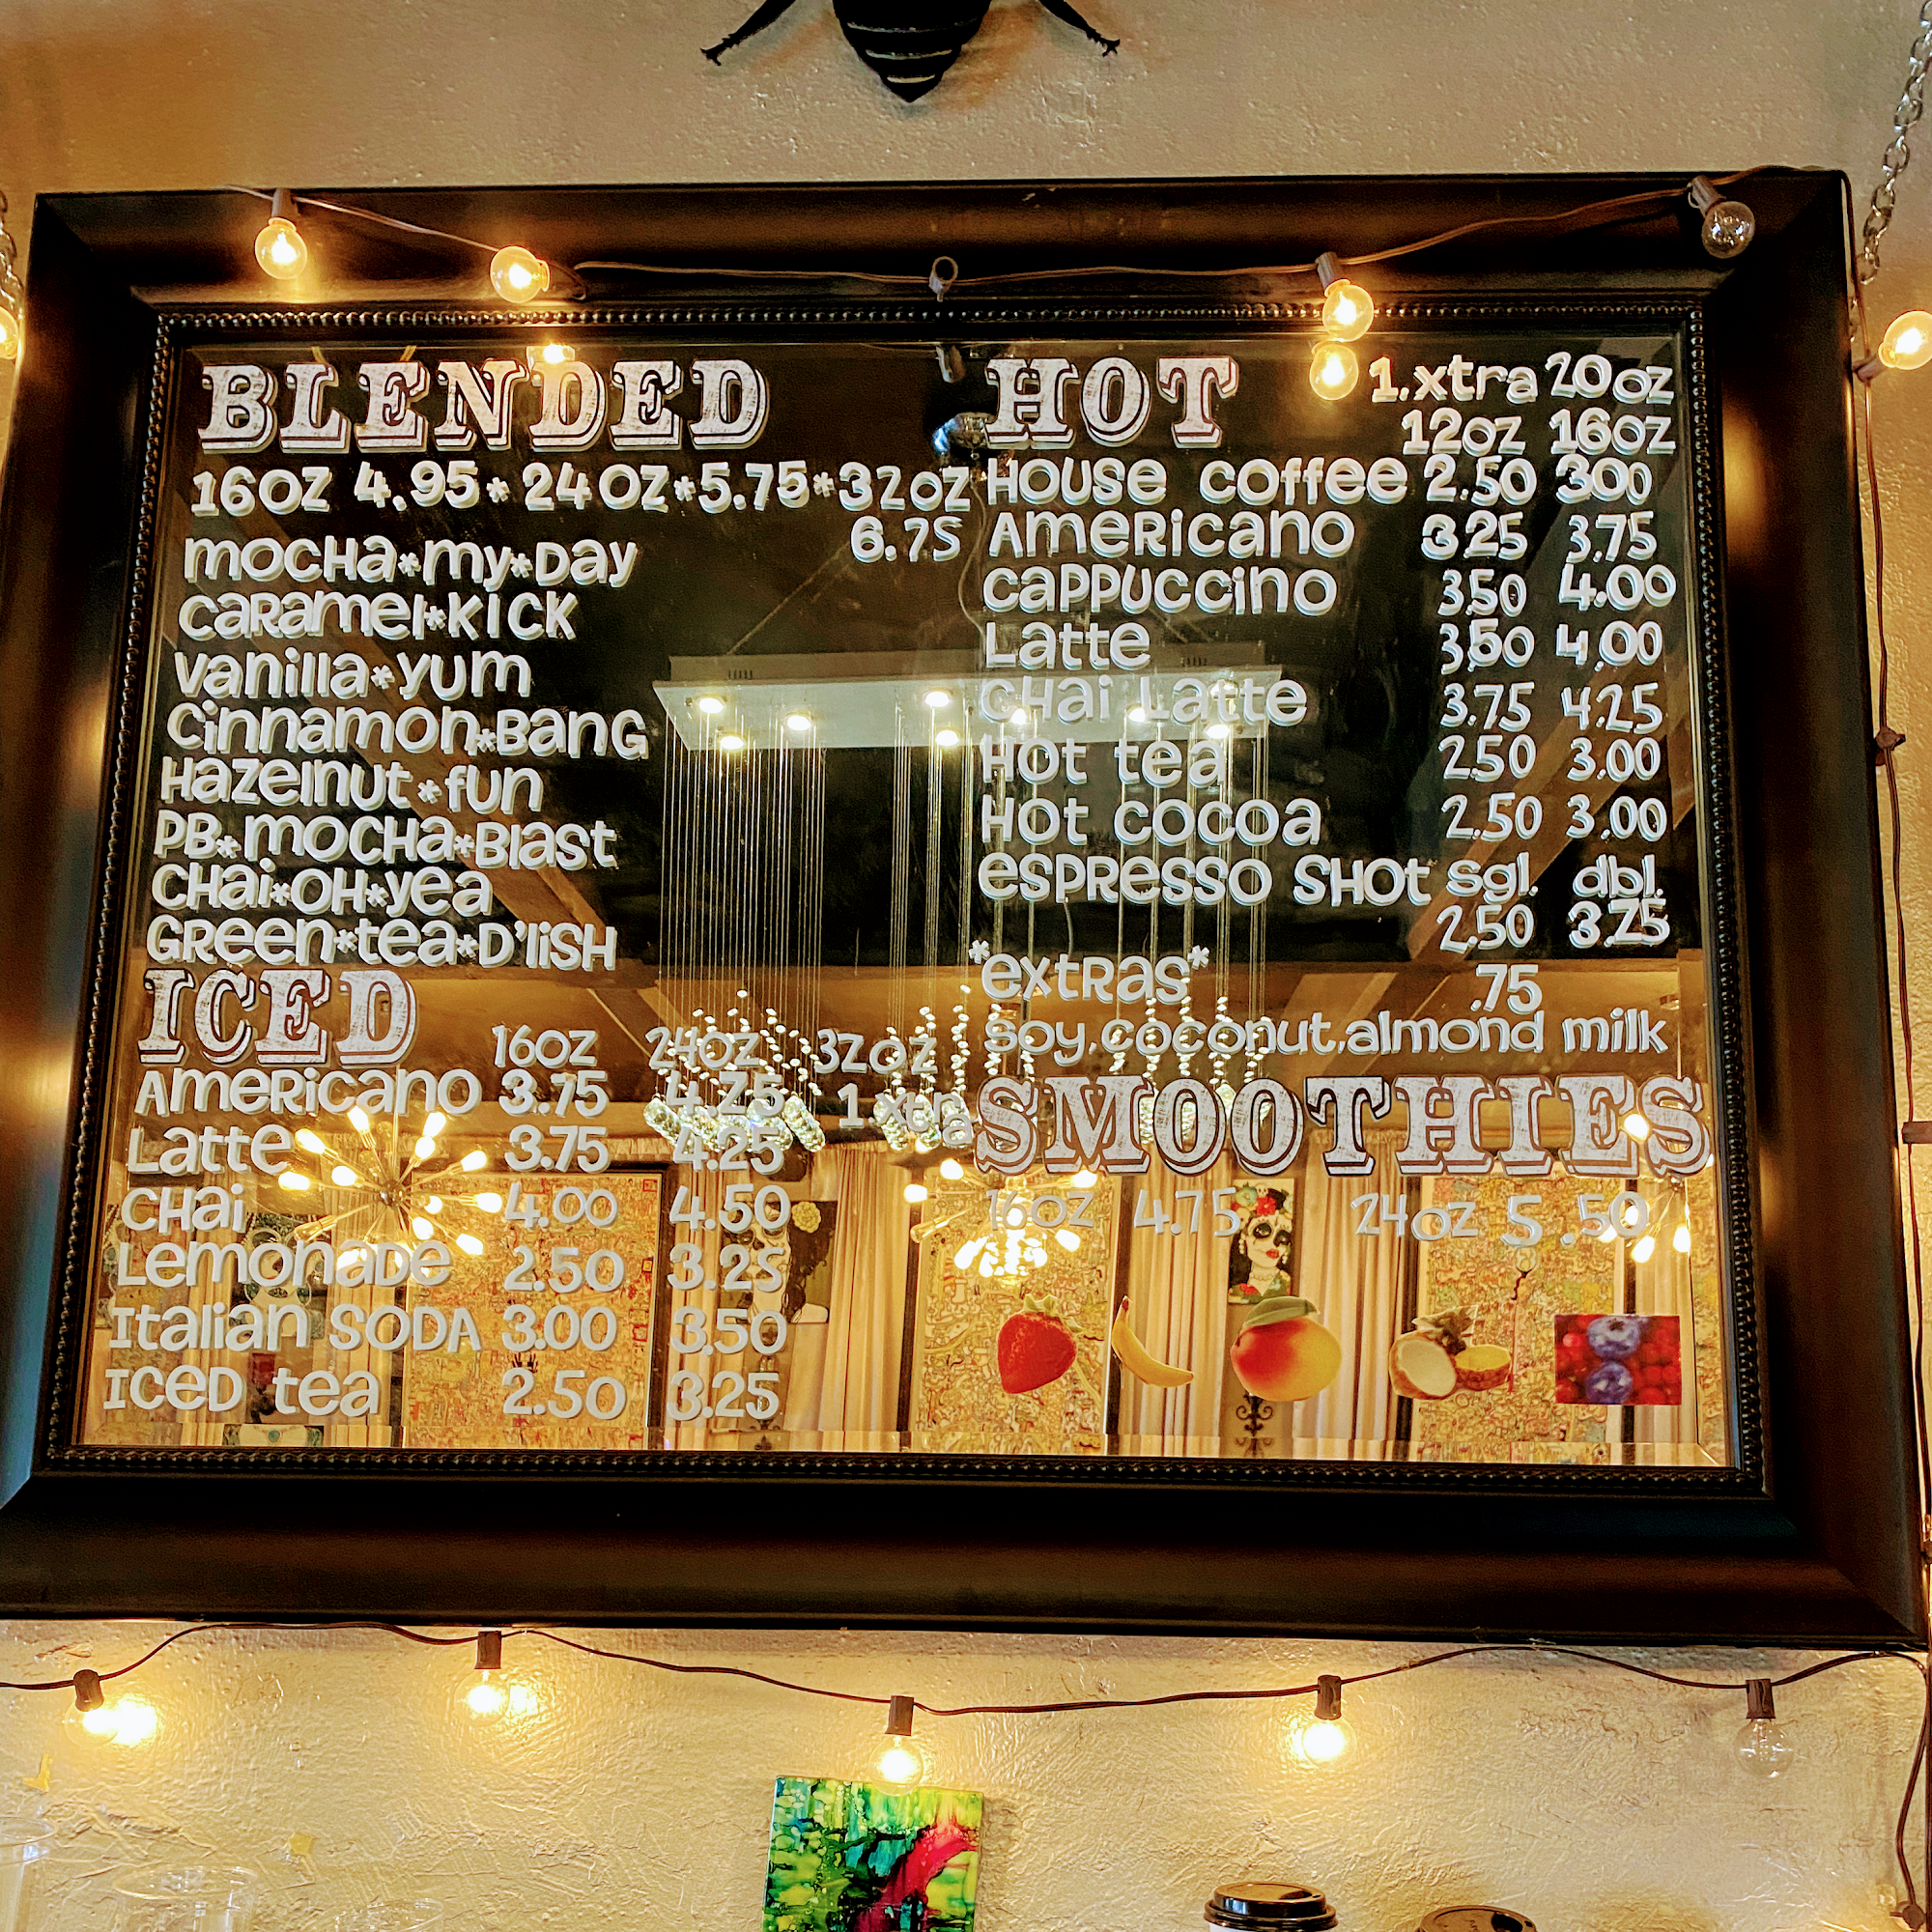 BLENDED
16oz 4.95*24oz*5.75*32oz
6.75
mocHa*my*Day
caRamel*KICK
vanilla*yum
cinnamon*BanG
Hazelnut*fun
PB*mocHa*Blast
CHai*OH*yea
GReen*tea*D'liSH
ICED
16oz 24oz 32oz
AmeRicano 3.75 4.25 1 xtra
Latte 3.75 4.25
CHai 4.00 4.50
LemonaDe 2.50 3.25
Italian SODA 3.00 3.50
ICeD tea 2.50 3.25
HOT 1.xtra 20oz
12oz 16oz
House coffee 2.50 300
AmeRicano 3.25 3.75
caPPuccino 3.50 4.00
Latte 3.50 4.00
CHai Latte 3.75 4.25
Hot tea 2.50 3.00
Hot cocoa 2.50 3.00
esPResso SHot sgl. dbl.
2.50 3.25
*extRas* .75
soy,coconut,almond milk
SMOOTHIES
16oz 4.75 24oz 5.50